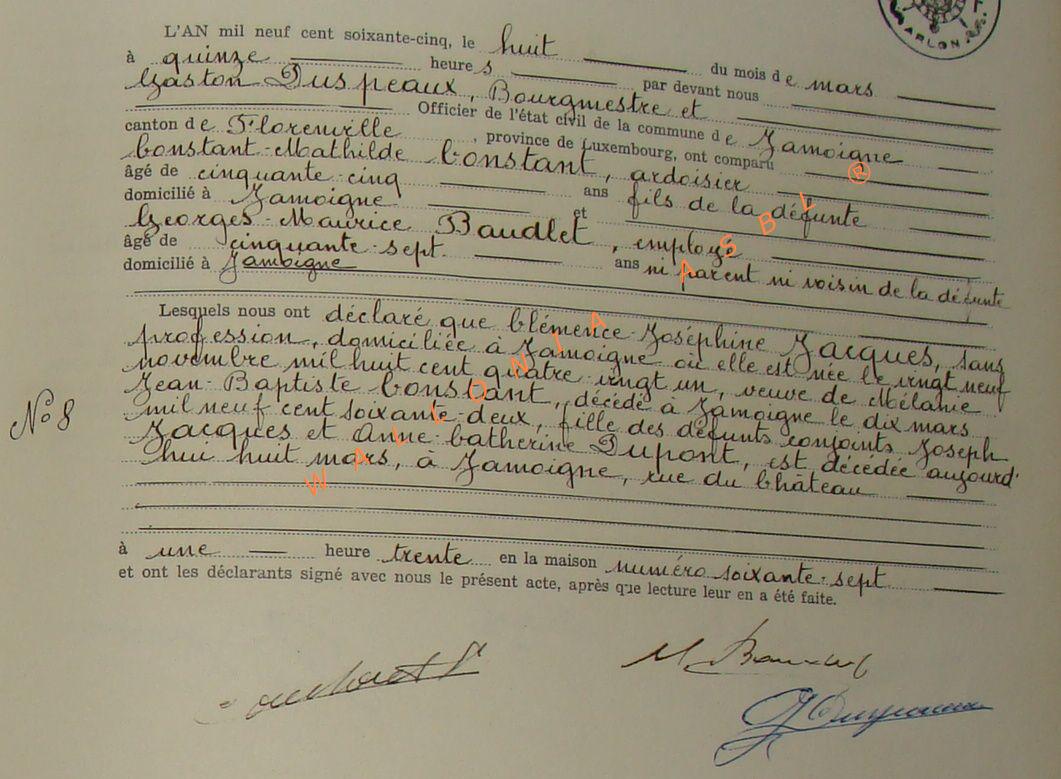 ARLON
L'AN mil neuf cent soixante-cinq, le huit du mois de mars
à quinze heures par devant nous
Gaston Duspeaux, Bourgmestre et
Officier de l'état civil de la commune de Jamoigne
canton de Florenville, province de Luxembourg, ont comparu
Constant-Mathilde Constant, ardoisier
âgé de cinquante-cinq ans fils de la défunte
domicilié à Jamoigne et
Georges-Maurice Baudlet, employé
âgé de cinquante-sept ans ni parent ni voisin de la défunte
domicilié à Jamoigne
Lesquels nous ont déclaré que Clémence-Joséphine Jacques, sans
profession, domiciliée à Jamoigne où elle est née le vingt neuf
novembre mil huit cent quatre vingt un, veuve de Mélanie
Jean-Baptiste Constant, décédé à Jamoigne le dix mars
mil neuf cent soixante-deux, fille des défunts conjoints Joseph
Jacques et Anne-Catherine Dupont, est décédée aujourd'
hui huit mars, à Jamoigne, rue du Château
N° 8
à une heure trente en la maison numéro soixante-sept
et ont les déclarants signé avec nous le présent acte, après que lecture leur en a été faite.
WALLONIA ASBL ®